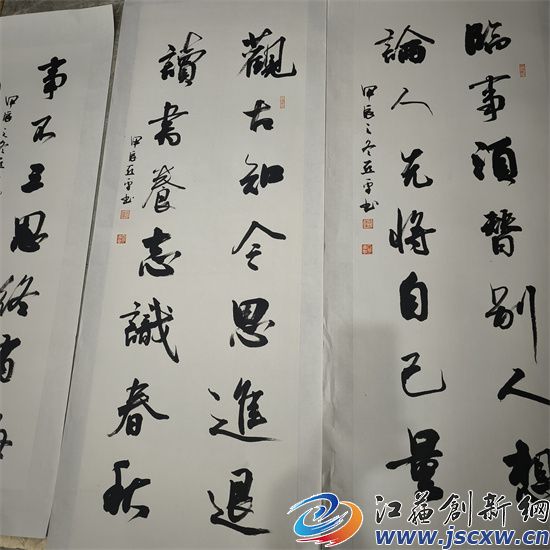 臨事須替別人想
論人先將自己量
甲辰之冬亚平书
觀古知今思進退
讀書養志識春秋
甲辰亚平书
事不三思终有
甲辰之冬亚
江苏创新網
www.jscxw.com